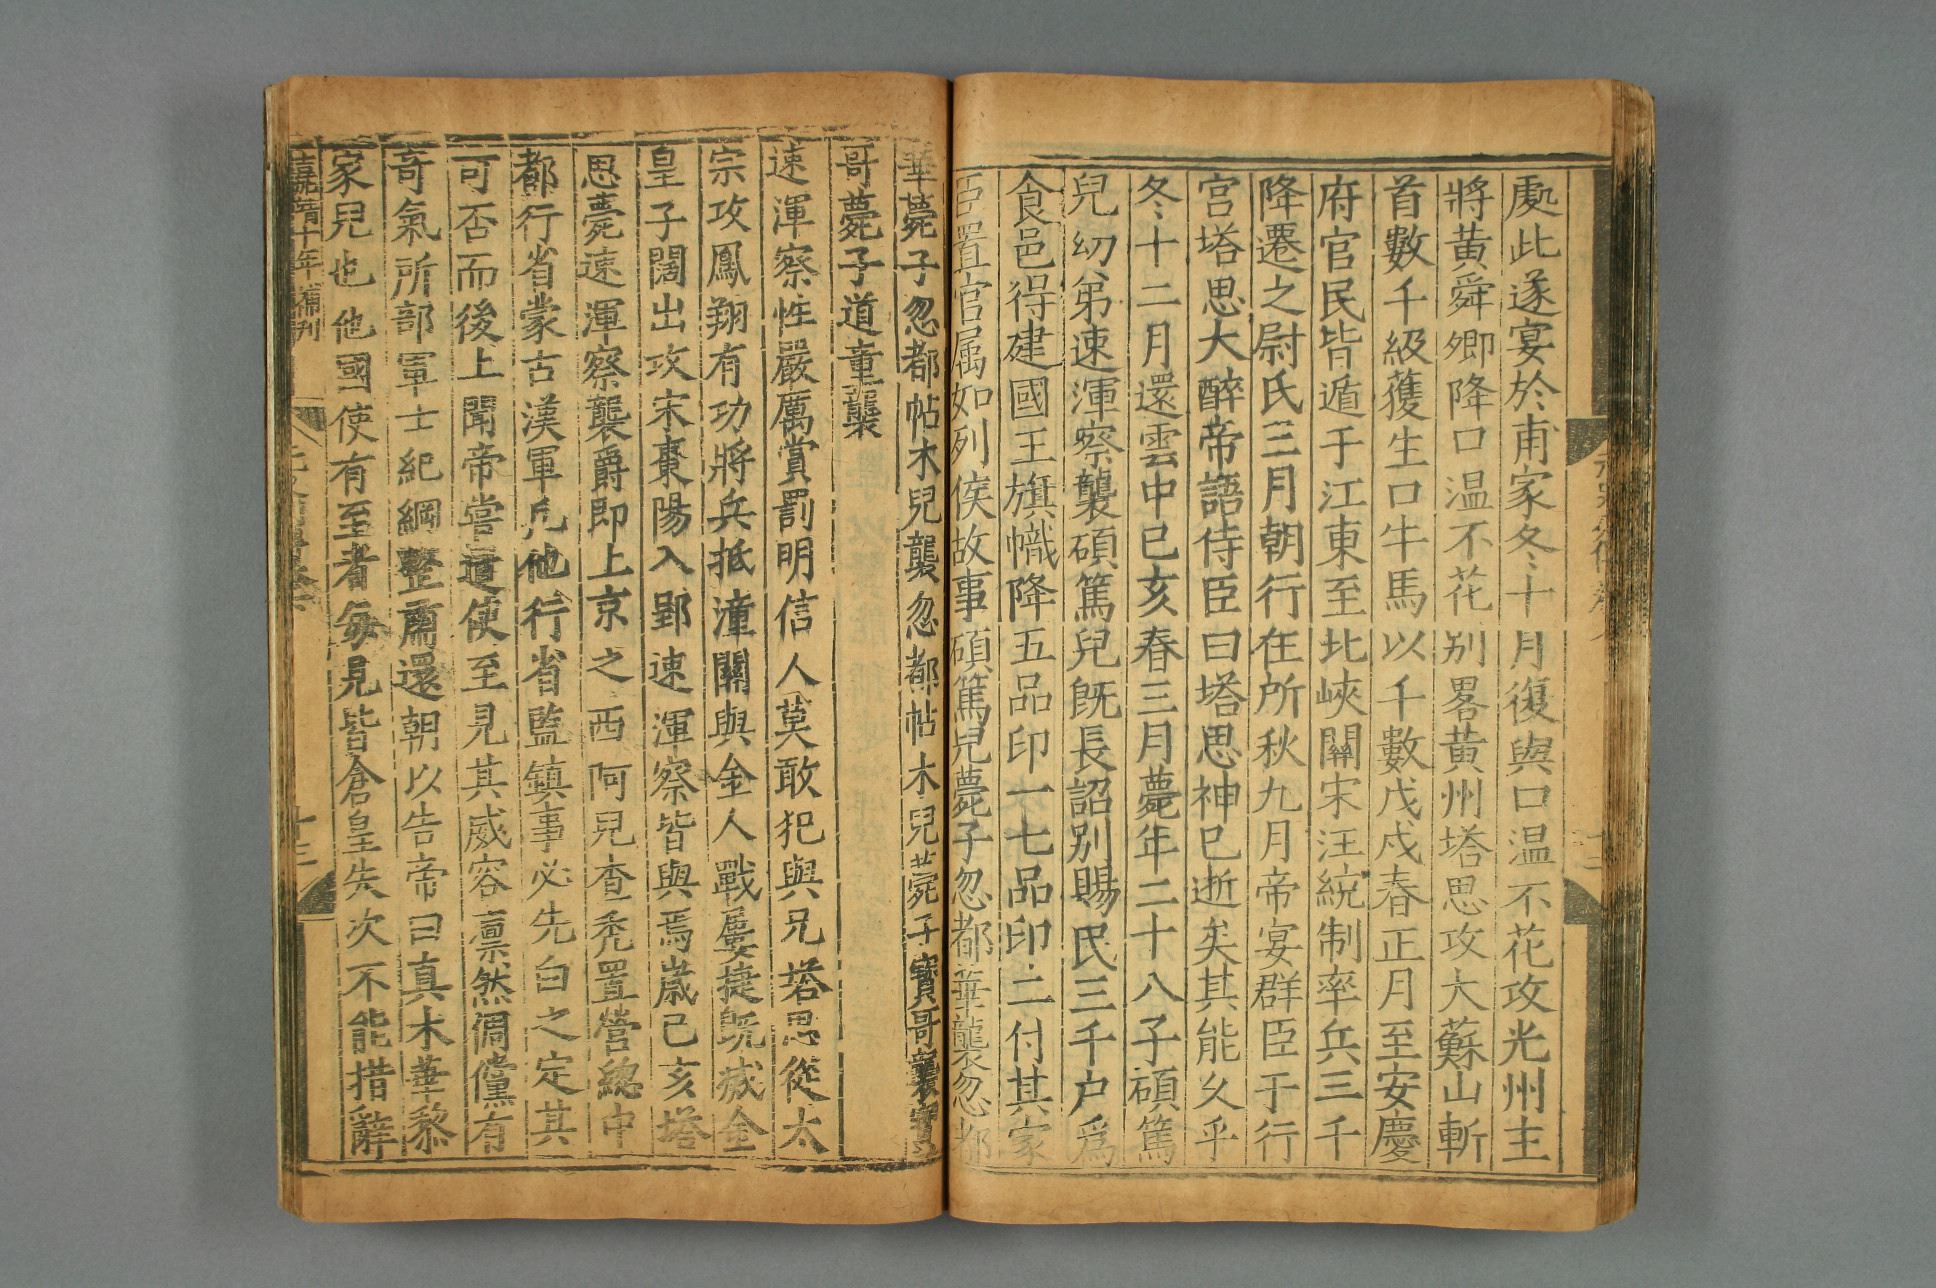 處此遂宴於甫家冬十月復與口温不花攻光州主
將黃舜卿降口温不花别畧黃州塔思攻大蘇山斬
首數千級獲生口牛馬以千數戊戌春正月至安慶
府官民皆遁于江東至北峽關宋汪統制率兵三千
降遷之尉氏三月朝行在所秋九月帝宴群臣于行
宫塔思大醉帝語侍臣曰塔思神已逝矣其能久乎
冬十二月還雲中己亥春三月薨年二十八子碩篤
兒幼弟速渾察襲碩篤兒既長詔别賜民三千户爲
食邑得建國王旗幟降五品印一七品印二付其家
臣置官属如列侯故事碩篤兒薨子忽都華襲忽都
華薨子忽都帖木兒襲忽都帖木兒薨子寳哥襲寳
哥薨子道童襲
速渾察性嚴厲賞罰明信人莫敢犯與兄塔思從太
宗攻鳳翔有功將兵抵潼關與金人戰屡捷既滅金
皇子闊出攻宋棗陽入郢速渾察皆與焉嵗己亥塔
思薨速渾察襲爵即上京之西阿兒查秃置營緫中
都行省蒙古漢軍凡他行省監鎮事必先白之定其
可否而後上聞帝嘗遣使至見其威容凛然倜儻有
奇氣所部軍士紀綱整肅還朝以告帝曰真木華黎
家兒也他國使有至者每見皆倉皇失次不能措辭
嘉靖十年補刊
十三